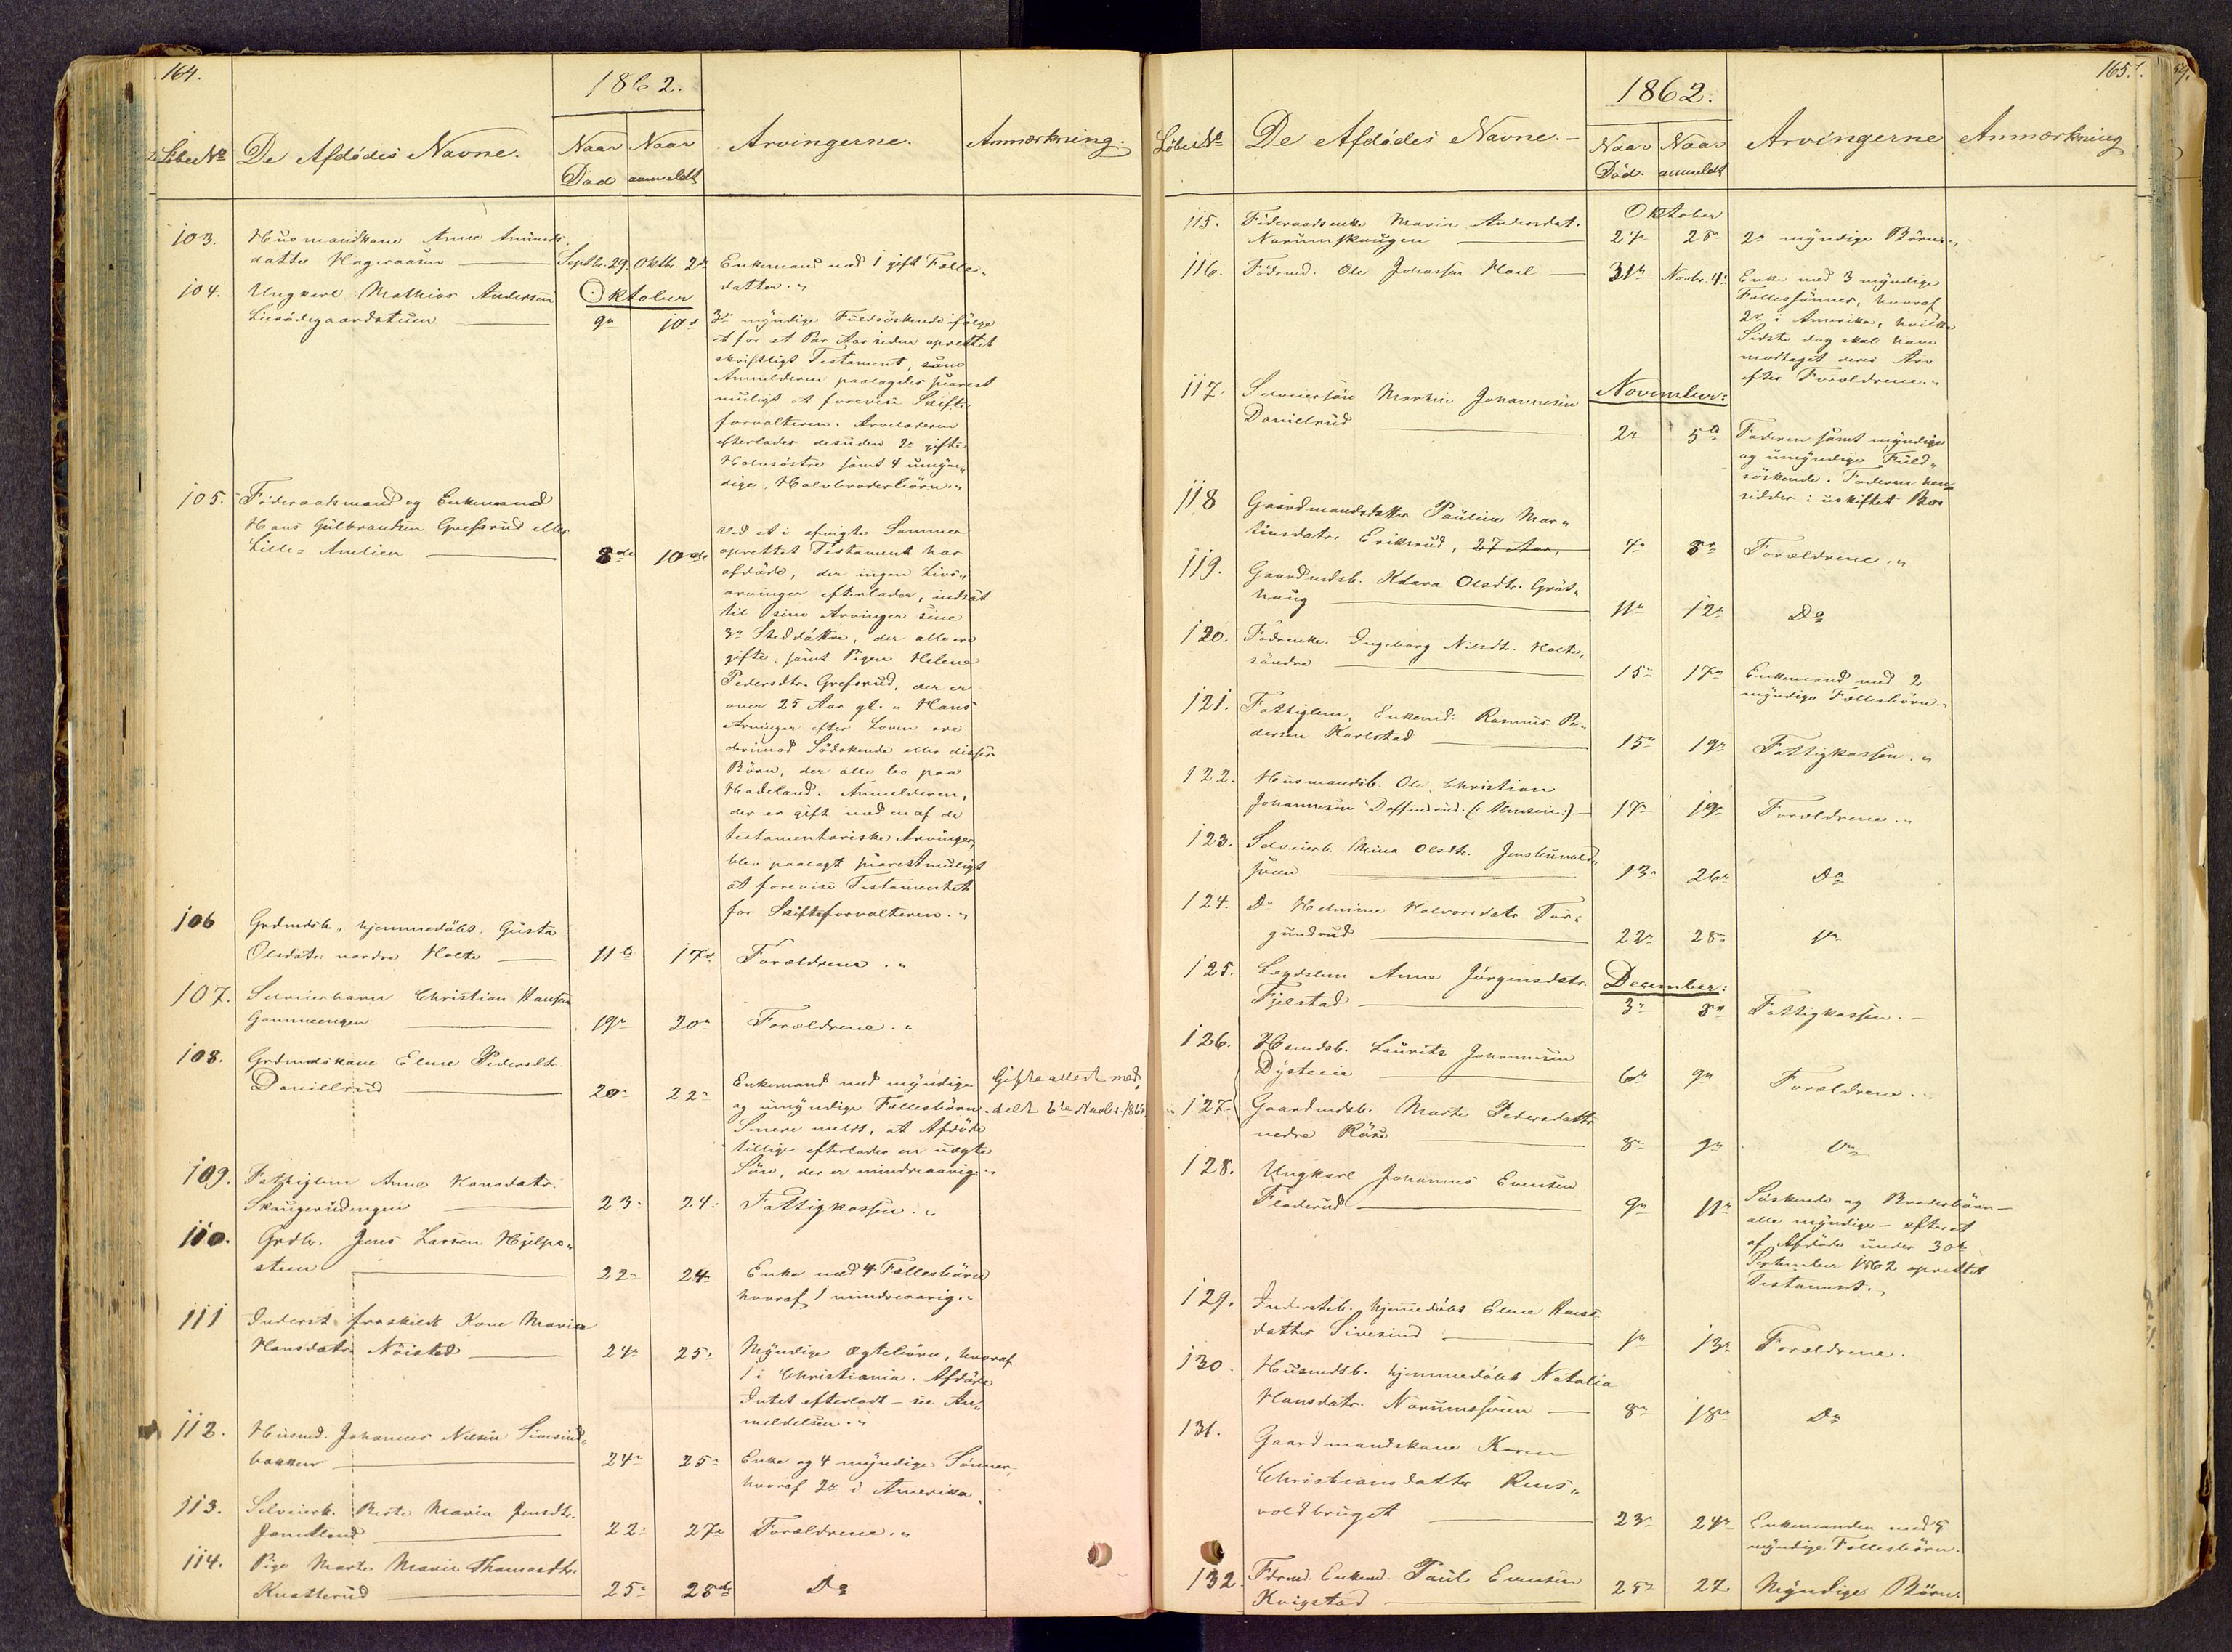 164.
1862.
Löbe No
De Afdödes Navne.
Naar Död
Naar anmeldt
Arvingerne.
Anmærkning.
103. Husmandkone Anne Amunds-
datter Hageraasen Septbr. 29. Oktbr. 2den Enkemand med 1 gift Fælles-
datter.
104. Ungkarl Mathias Andersen Oktober
9de 10de 3de myndige Fuldsöskende ifölge
et for et Par Aar siden oprettet
skriftligt Testament, som
Anmelderen paalagdes snarest
muligt at forevise Skifte-
forvalteren. Arveladeren
efterlader desuden 2de gifte
Halvsöstre samt 4 umyn-
dige Halvbroderbörn.
105. Föderaadsmand og Enkemand
Hans Gulbrandsen Grefsrud eller
Lille-Amlien 8de 10de
ved et i afvigte Sommer
oprettet Testament har
afdöde, der ingen Livs-
arvinger efterlader, indsat
til sine Arvinger sine
3de Steddöttre, der alle ere
gifte, samt Pigen Helene
Pedersdtr. Grefsrud, der er
over 25 Aar gl. Hans
Arvinger efter Loven ere
derimod Södskende eller disses
Börn, der alle bo paa
Hadeland. Anmelderen,
der er gift med en af de
testamentariske Arvinger,
blev paalagt snarest muligt
at forevise Testamentet
for Skifteforvalteren.
106 Grdmdsb., hjemmedöbt, Gusta
Olsdatr. nordre Holte 11te 17de Forældrene.
107. Selveierbarn Christian Hansen
19de 20de Forældrene.
108. Grdmdskone Elene Pedersdtr.
Danielsrud 20de 22de Enkemand med myndige
og umyndige Fællesbörn.
Senere meldt, at Afdöde
tillige efterlader en uægte
Sön, der er mindreaarig.
Gifteattest med-
delt 6te Novbr. 186
109. Fattiglem Anne Hansdatr.
Skougerudengen 23de 24: Fattigkassen.
110. Grdbr. Jens Larsen Hjelpe-
steen 22de 24de Enke med 4 Fællesbörn
hvoraf 1 mindreaarig.
111 Inderst fraskildt Kone Maria
Hansdatr. Nöisted 24de 25de Myndige Ægtebörn, hvoraf
1 i Christiania. Afdöde
Intet efterladt – se An-
meldelsen.
112. Husmd. Johannes Nielsen Sivesind-
bakken 24de 25de Enke og 4 myndige Sönner,
hvoraf 2de i Amerika.
113. Selveierb. Berte Maria Jensdtr.
22de 27de Forældrene.
114. Pige Marte Marie Thomasdtr.
Knatterud 25de 28de Do
165.
1862.
Löbe No
De Afdödes Navne.
Naar Död.
Naar anmeldt
Arvingerne
Anmærkning
115. Föderaadsenke Maria Andersdat. Oktober
Narumskougen 27de 28de 2de myndige Börn.
116. Födrmd. Ole Johansen Hoel 31te Novbr. 4de Enke med 3 myndige
Fællessönner, hvoraf
2de i Amerika, hvilke
Sidste dog skal have
modtaget deres Arv
efter Forældrene.
117. Selveiersön Martin Johannesen November:
Danielsrud 2de 5te Faderen samt myndige
og umyndige Fuld-
söskende. Faderen hen-
sidder i uskiftet Bo
118 Gaardmandsdatter Pauline Mar-
tinsdatr. Eriksrud, 27 Aar, 7de 8de Forældrene.
119. Gaardmdsb. Klara Olsdtr. Gröt-
haug 11te 12te Do
120. Födrenke Ingeborg Nilsdtr. Holte,
söndre 15de 17de Enkemand med 2
myndige Fællesbörn.
121. Fattiglem, Enkemd. Rasmus Pe-
dersen Karlstad 15de 19de Fattigkassen.
122. Husmandsb. Ole Christian
Johannesen Daffindrud. 17de 19de Forældrene.
123. Selveierb. Mina Olsdtr.
13de 26de Do
124. Do Helmine Halvorsdatr. Tor-
gundrud 22de 28de Do
125. Legdslem Anne Jörgensdatr. December:
Fjelstad 3de 8de Fattigkassen.
126. Hsmdsb. Laurits Johannesen
Dysteeie 6te 9de Forældrene.
127. Gaardmdsb. Marte Pedersdatter
nedre 8de 9de Do
128. Ungkarl Johannes Evensen
Fladerud 9de 11te Söskende og Broderbörn –
alle myndige – efter et
af Afdöde under 30te
September 1862 oprettet
Testament.
129. Inderstb. hjemmedöbt Elene Hans-
datter Sivesind 1ste 13de Forældrene.
130. Husmdsb. hjemmedöbt Natalia
Hansdatr. Narumssveen 8de 18de Do
131. Gaardmandskone Karen
Christiansdatter Rens-
voldbruget 23de 24de Enkemanden med 5
myndige Fællesbörn.
132. Fdrmd. Enkemd. Paul Evensen
Kvigstad 25de 27. Myndige Börn.